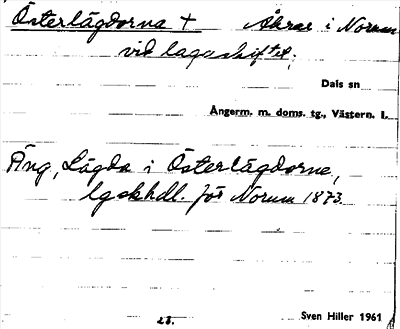 Österlägdorna + Åkrar i Norum
vid laga skiftet.
Dals sn
Ångerm. m. doms. tg., Västern. l.
Äng, Lägda i Österlägdorne,
lgskhdl. för Norum 1873.
28. Sven Hiller 1961